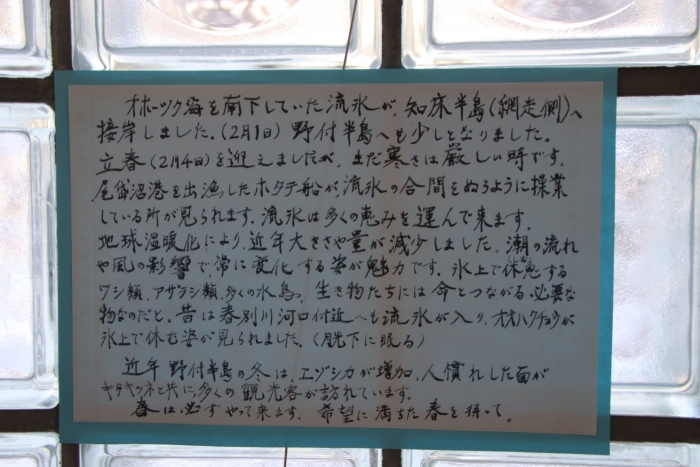 オホーツク海を南下していた流氷が、知床半島(網走側)へ
接岸しました。(2月1日) 野付半島へも少しとなりました。
立春(2月4日)を迎えましたが、まだ寒さは厳しい時です。
尾岱沼港を出漁したホタテ船が、流氷の合間をぬうように操業
している所が見られます。流氷は多くの恵みを運んで来ます。
地球温暖化により、近年大きさや量が減少しました。潮の流れ
や風の影響で、常に変化する姿が魅力です。氷上で休息する
ワシ類、アザラシ類、多くの水鳥。生き物たちには命とつながる必要な
物なのだと。昔は春別川河口付近へも流氷が入り、オオハクチョウが
氷上で休む姿が見られました。(月光下に眠る)
近年 野付半島の冬は、エゾシカが増加、人慣れした面が
キタキツネと共に、多くの観光客が訪れています。
春は必ずやって来ます。希望に満ちた春を待って。